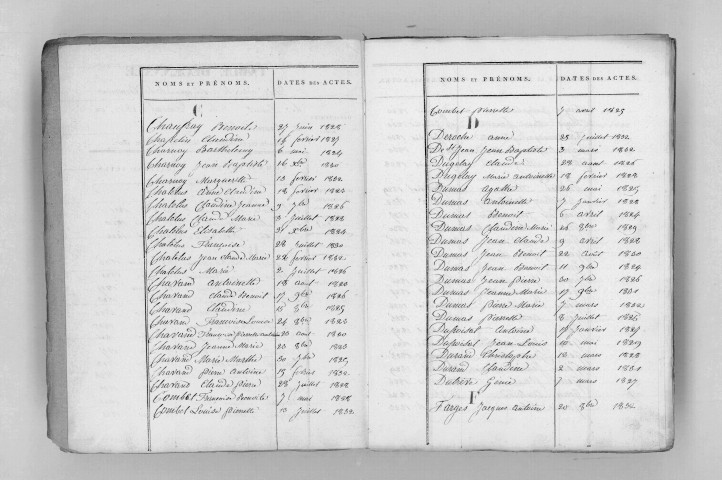 NOMS ET PRÉNOMS. DATES DES ACTES.
C
Chanfray Benoite 27 juin 1828
Chapelin Claudine 16 février 1825
Charnay Barthelemy 6 mai 1824
Charnay Jean Baptiste 16 Xbre 1830
Charnay Marguerite 13 février 1832
Chatelus Anne Claudine 18 février 1823
Chatelus Claudine Jeanne 9 7bre 1826
Chatelus Claude Marie 3 juillet 1828
Chatelus Elisabeth Xbre 1824
Chatelus Françoise 28 juillet 1830
Chatelus Jean Claude Marie 28 février 1832
Chatelus Marie 2 juillet 1826
Chavand Antoinette 18 août 1830
Chavand Claude Benoit 17 9bre 1826
Chavand Claudine 15 8bre 1825
Chavand Françoise Louise 24 8bre 1823
Chavand François août 1830
Chavand Jeanne Marie 23 8bre 1823
Chavand Marie Marthe 30 7bre 1825
Chavand Pierre Antoine 15 février 1832
Chavand Claude Pierre 28 juillet 1828
Combet Benoite 7 mai 1828
Combet Louise Pierrette 13 juillet 1832
NOMS ET PRÉNOMS. DATES DES ACTES.
Combet Pierrette 7 avril 1825
D
Deroche Anne 25 juillet 1832
De St Jean Jean Baptiste 3 mars 1832
Dugelay Claude 28 août 1826
Dugelay Marie Antoinette 18 février 1828
Dumas Agathe 26 mai 1825
Dumas Antoinette 7 janvier 1828
Dumas Benoit 6 avril 1824
Dumas Claudine Marie 26 8bre 1829
Dumas Jean Claude 9 avril 1828
Dumas Jean Benoit 22 août 1830
Dumas Jean Benoit 11 9bre 1824
Dumas Jean Pierre 30 7bre 1826
Dumas Jeanne Marie 17 9bre 1831
Dumas Pierre Marie 7 mars 1832
Dumas Pierrette 8 juillet 1825
Dupoizat Antoine janvier 1829
Dupoizat Jean Louis 10 mai 1829
Durand Christophe 12 mars 1828
Durand Claudine 2 mars 1831
Dutrève Genie 7 mars 1827
F
Farges Jacques Antoine 20 8bre 1832